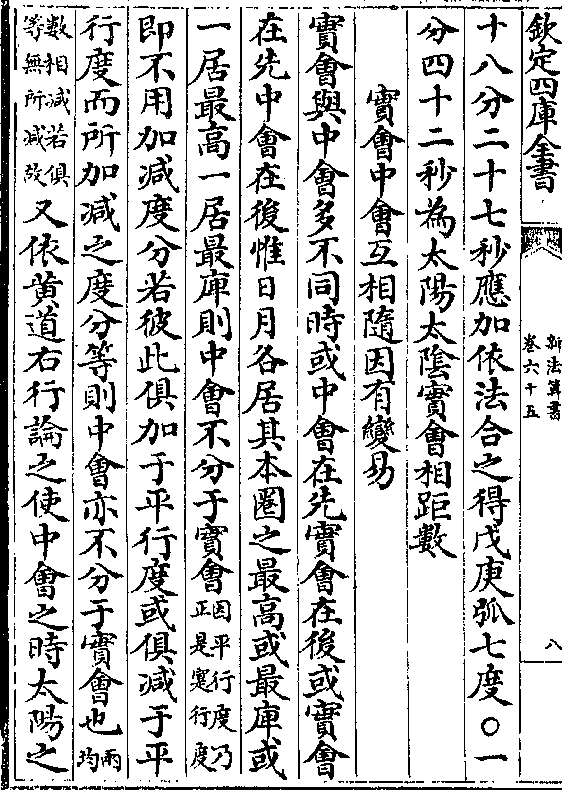 欽定四庫全書
新法算書
卷六十五
八
十八分二十七秒應加依法合之得戊庚弧七度〇一
分四十二秒為太陽太陰實會相距數
實會中會互相隨因有變易
實會與中會多不同時或中會在先實會在後或實會
在先中會在後惟日月各居其本圈之最高或最庳或
一居最高一居最庳則中會不分于實會因平行度乃正是寔行度
即不用加減度分若彼此俱加于平行度或俱減于平
行度而所加減之度分等則中會亦不分于實會也兩均
數相減若俱等無所減故又依黄道右行論之使中會之時太陽之